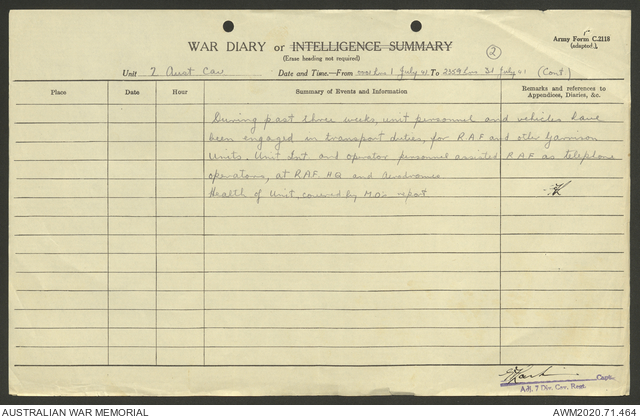 Army Form C.2118
(adapted.)
WAR DIARY or INTELLIGENCE SUMMARY
(Erase heading not required)
2
Unit 7 Aust Cav Date and Time.—From 0001 hrs 1 July 41 To 2359 hrs 31 July 41 (Cont)
Place Date Hour Summary of Events and Information Remarks and references to Appendices, Diaries, &c.
During past three weeks, unit personnel and vehicles have
been engaged in transport duties, for R.A.F and other Garrison
Units. Unit Int and operator personnel assisted R.A.F as telephone
operators, at R.A.F. HQ and Aerodromes
Health of Unit, covered by MO's report
Capt.
Adj. 7 Div. Cav. Regt.
AUSTRALIAN WAR MEMORIAL AWM2020.71.464